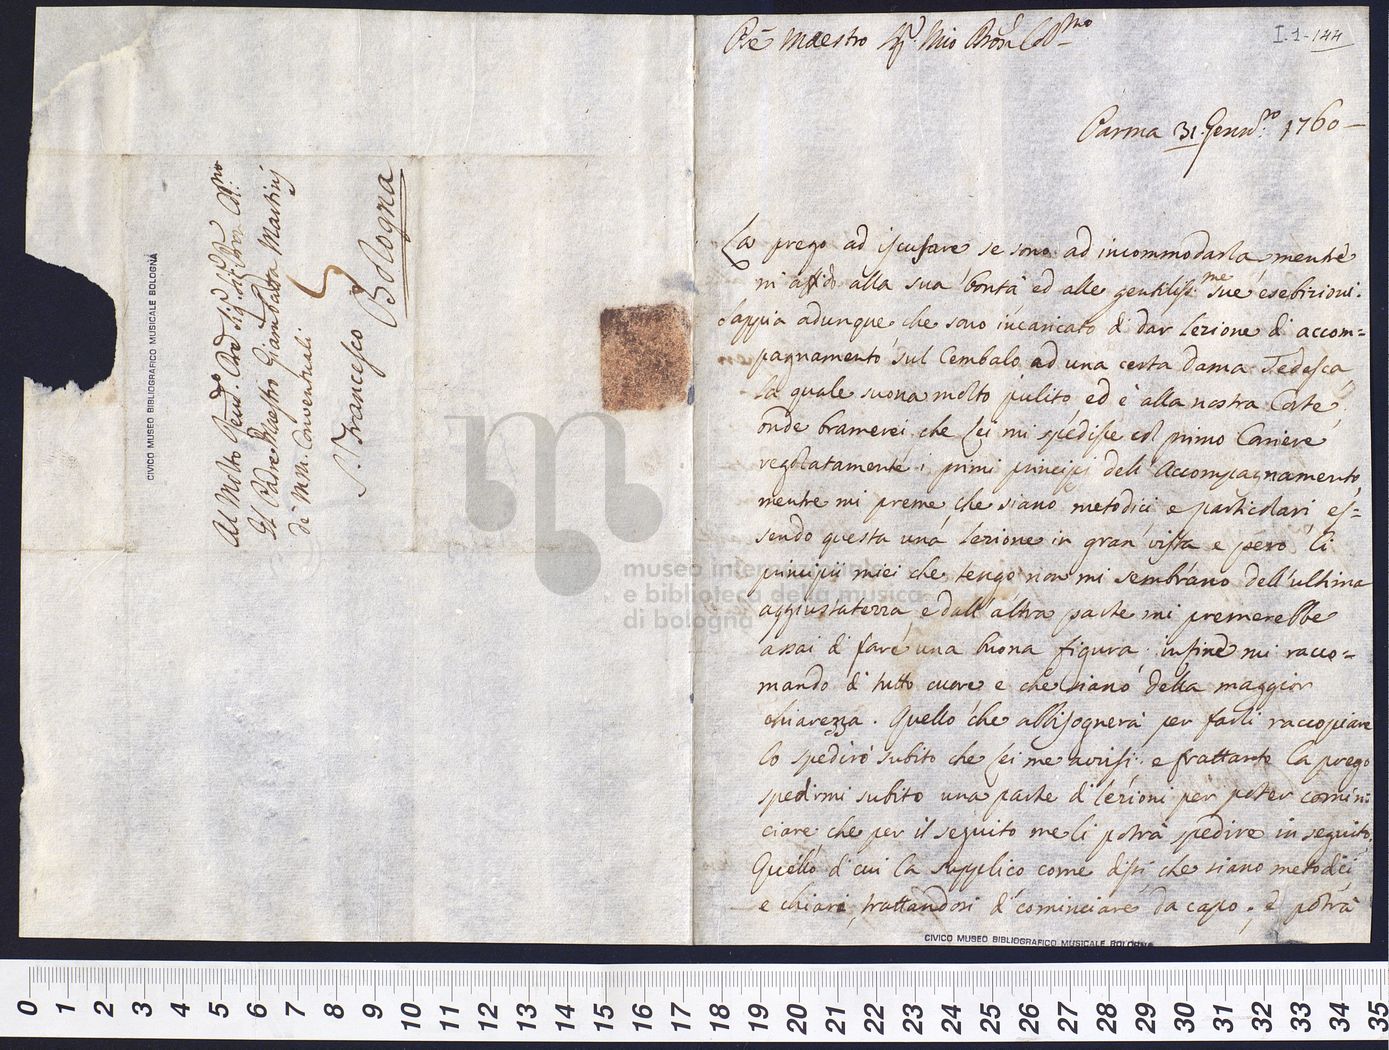 CIVICO MUSEO BIBLIOGRAFICO MUSICALE BOLOGNA
Al Molto Rend.do
Il Padre Maestro Giambatta Martinj
de' M.M. Conventuali
S. Francesco Bologna
Maestro Mio
I.1-144
Parma 31. Genn.ro 1760
La prego ad iscusare se sono ad incommodarla mentre
mi affido alla sua bontà ed alle gentiliss.me sue esebizioni.
Sappia adunque che sono incaricato di dar lezione di accom=
pagnamento sul Cembalo ad una certa Dama Tedesca
la quale suona molto pulito ed è alla nostra Corte,
onde bramerei che lei mi spedisse col primo Coriere
regolatamente i primi principj dell'Accompagnamento,
mentre mi preme che siano metodici e particolari es=
sendo questa una lezione in gran vista e però li
principii miei che tengo non mi sembrano dell'ultima
aggiustatezza, e dall'altra parte mi premerebbe
assai di fare una buona figura. infine mi racco=
mando di tutto cuore e che siano della maggior
chiarezza. Quello che abbisognerà per farli raccopiare
lo spedirò subito che lei me avvisi. e frattanto la prego
spedirmi subito una parte di lezioni per poter comin:
ciare che per il seguito me li potrà spedire in seguito.
Quello di cui la supplico come dissi che siano metodici
e chiari, trattandosi di cominciare da capo, e potrà
CIVICO MUSEO BIBLIOGRAFICO MUSICALE BOLOGNA
museo internazionale
e biblioteca della musica
di bologna
0 1 2 3 4 5 6 7 8 9 10 11 12 13 14 15 16 17 18 19 20 21 22 23 24 25 26 27 28 29 30 31 32 33 34 35